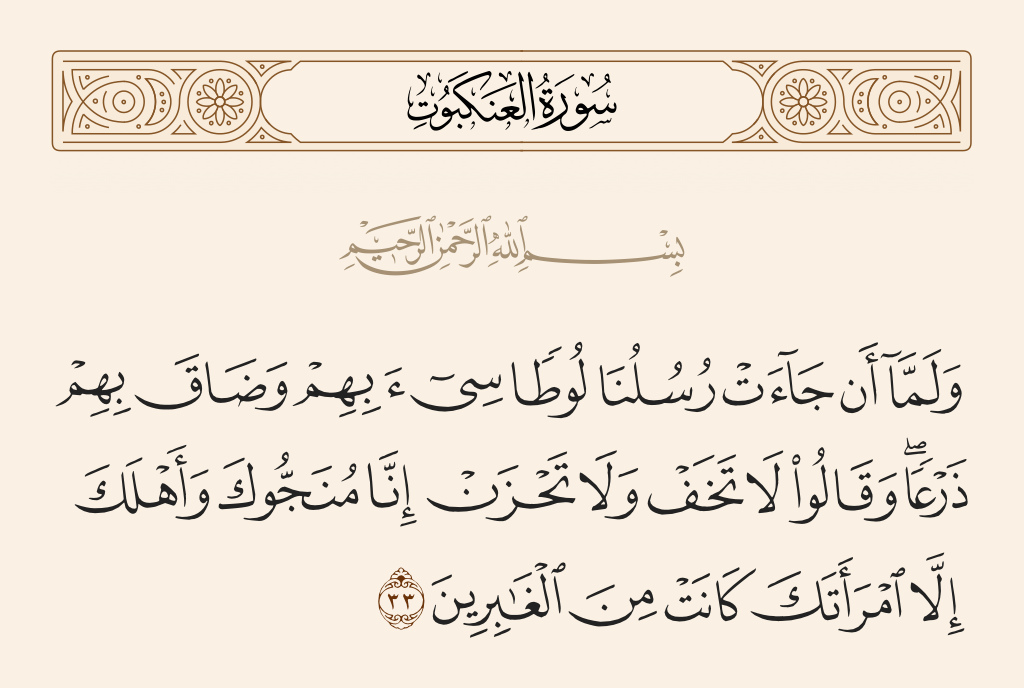 سُورَةُ العَنكَبُوتِ
بِسْمِ ٱللَّهِ ٱلرَّحْمَٰنِ ٱلرَّحِيمِ
وَلَمَّآ أَن جَآءَتْ رُسُلُنَا لُوطًا سِىٓءَ بِهِمْ وَضَاقَ بِهِمْ
ذَرْعًا ۖ وَقَالُوا۟ لَا تَخَفْ وَلَا تَحْزَنْ إِنَّا مُنَجُّوكَ وَأَهْلَكَ
إِلَّا ٱمْرَأَتَكَ كَانَتْ مِنَ ٱلْغَٰبِرِينَ ٣٣